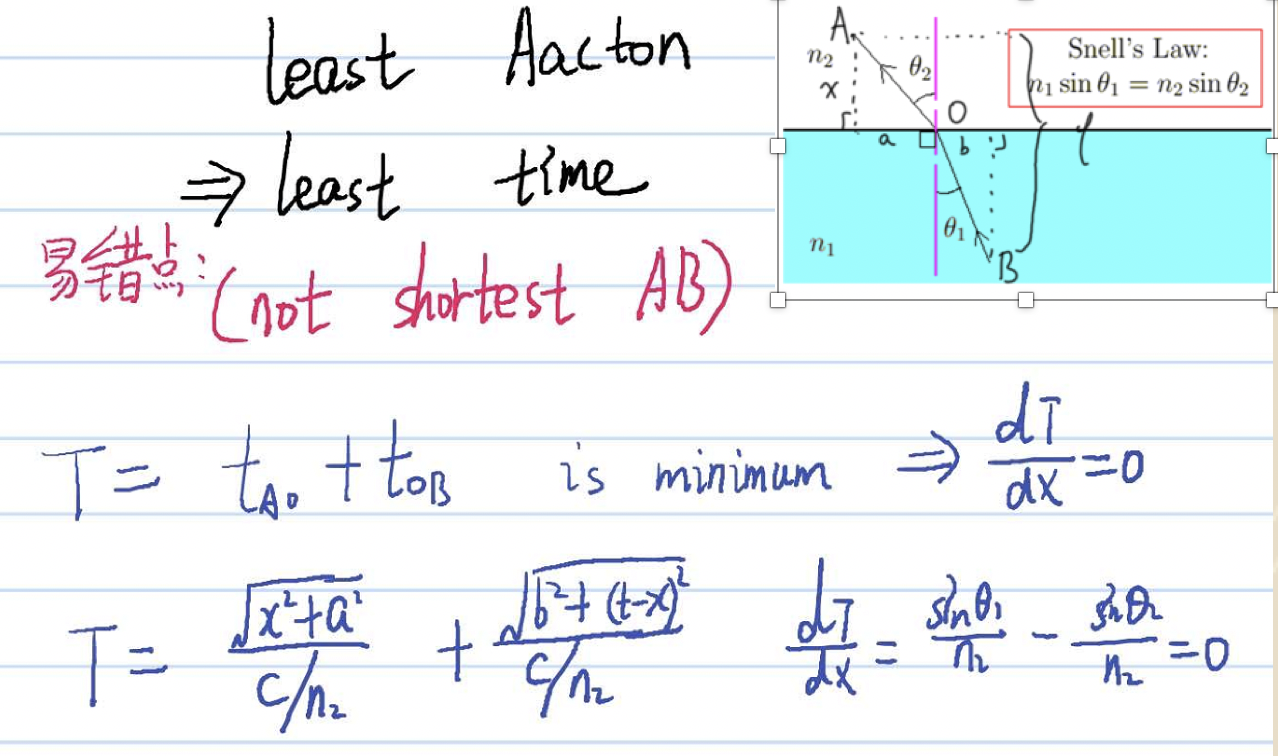 least Aacton
⇒ least time
易错点: (not shortest AB)
A
n₂
x
θ₂
O
a
b
l
θ₁
n₁
B
Snell's Law:
n₁ sin θ₁ = n₂ sin θ₂
T = t_AO + t_OB is minimum ⇒ dT/dx = 0
T = √(x²+a²)/(c/n₂) + √(b²+(t-x)²)/(c/n₂) dT/dx = sinθ₁/n₂ - sinθ₂/n₂ = 0